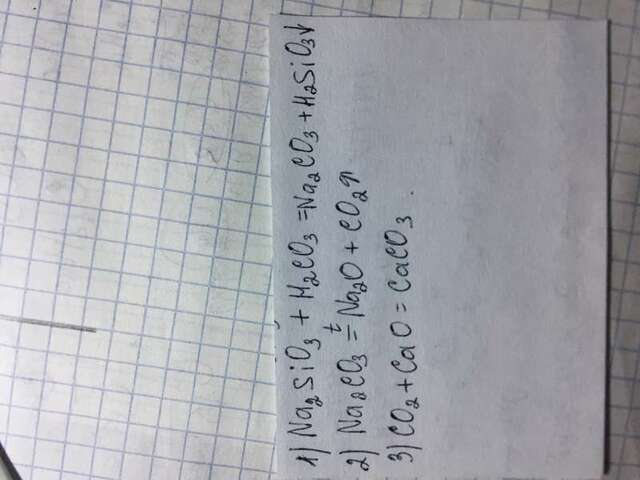 1) Na₂SiO₃ + H₂CO₃ = Na₂CO₃ + H₂SiO₃↓
2) Na₂CO₃ =ᵗ Na₂O + CO₂↑
3) CO₂ + CaO = CaCO₃.